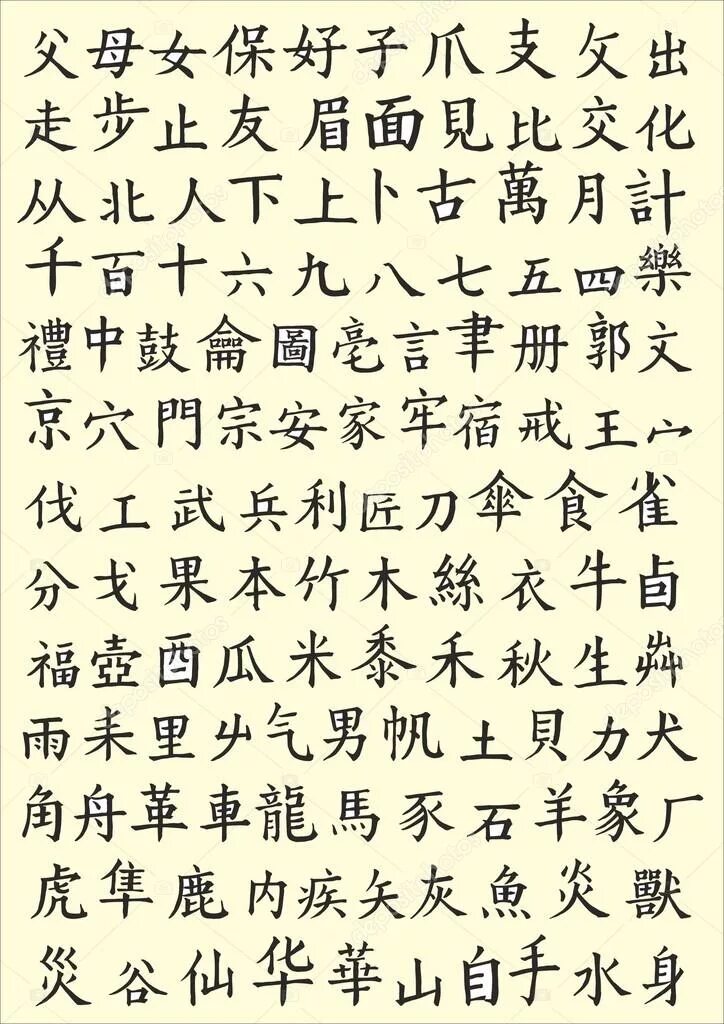 父母女保好子爪支攵出
走步止友眉面見比交化
从北人下上卜古萬月計
千百十六九八七五四樂
禮中鼓龠圖亳言聿册郭文
京穴門宗安家牢宿戒王宀
伐工武兵利匠刀傘食雀
分戈果本竹木絲衣牛卣
福壺酉瓜米黍禾秋生茻
雨耒里屮气男帆土貝力犬
角舟革車龍馬豕石羊象厂
虎隼鹿内疾矢灰魚炎獸
災谷仙华華山自手水身